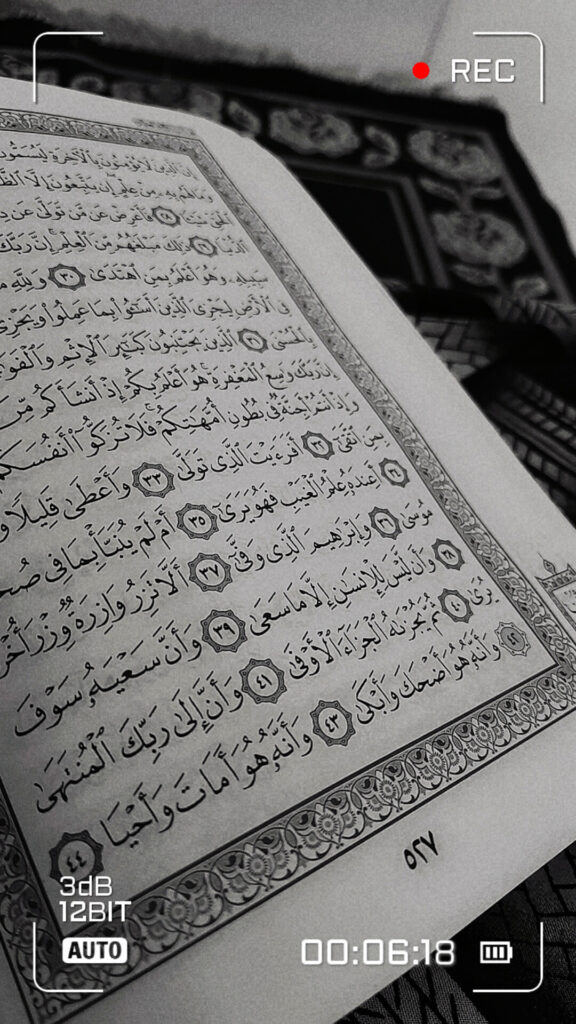 REC
إِنَّ ٱلَّذِينَ لَا يُؤْمِنُونَ بِٱلْءَاخِرَةِ لَيُسَمُّونَ
وَمَا لَهُم بِهِۦ مِنْ عِلْمٍ إِن يَتَّبِعُونَ إِلَّا
ٱلْحَقِّ شَيْـًٔا ٢٨ فَأَعْرِضْ عَن مَّن تَوَلَّىٰ عَن
ٱلدُّنْيَا ٢٩ ذَٰلِكَ مَبْلَغُهُم مِّنَ ٱلْعِلْمِ إِنَّ رَبَّكَ
سَبِيلِهِۦ وَهُوَ أَعْلَمُ بِمَنِ ٱهْتَدَىٰ ٣٠ وَلِلَّهِ
فِى ٱلْأَرْضِ لِيَجْزِىَ ٱلَّذِينَ أَسَٰٓـُٔوا۟ بِمَا عَمِلُوا۟ وَيَجْزِىَ
بِٱلْحُسْنَى ٣١ ٱلَّذِينَ يَجْتَنِبُونَ كَبَٰٓئِرَ ٱلْإِثْمِ
إِنَّ رَبَّكَ وَٰسِعُ ٱلْمَغْفِرَةِ هُوَ أَعْلَمُ بِكُمْ إِذْ أَنشَأَكُم مِّنَ
وَإِذْ أَنتُمْ أَجِنَّةٌ فِى بُطُونِ أُمَّهَٰتِكُمْ فَلَا تُزَكُّوٓا۟ أَنفُسَكُمْ
بِمَنِ ٱتَّقَىٰٓ ٣٢ أَفَرَءَيْتَ ٱلَّذِى تَوَلَّىٰ ٣٣ وَأَعْطَىٰ قَلِيلًا
٣٤ أَعِندَهُۥ عِلْمُ ٱلْغَيْبِ فَهُوَ يَرَىٰٓ ٣٥ أَمْ لَمْ يُنَبَّأْ بِمَا فِى
مُوسَىٰ ٣٦ وَإِبْرَٰهِيمَ ٱلَّذِى وَفَّىٰٓ ٣٧ أَلَّا تَزِرُ وَازِرَةٌ وِزْرَ
٣٨ وَأَن لَّيْسَ لِلْإِنسَٰنِ إِلَّا مَا سَعَىٰ ٣٩ وَأَنَّ سَعْيَهُۥ سَوْفَ
يُرَىٰ ٤٠ ثُمَّ يُجْزَىٰهُ ٱلْجَزَآءَ ٱلْأَوْفَىٰ ٤١ وَأَنَّ إِلَىٰ رَبِّكَ ٱلْمُنتَهَىٰ
٤٢ وَأَنَّهُۥ هُوَ أَضْحَكَ وَأَبْكَىٰ ٤٣ وَأَنَّهُۥ هُوَ أَمَاتَ وَأَحْيَا ٤٤
٥٢٧
3dB
12BIT
AUTO
00:06:18